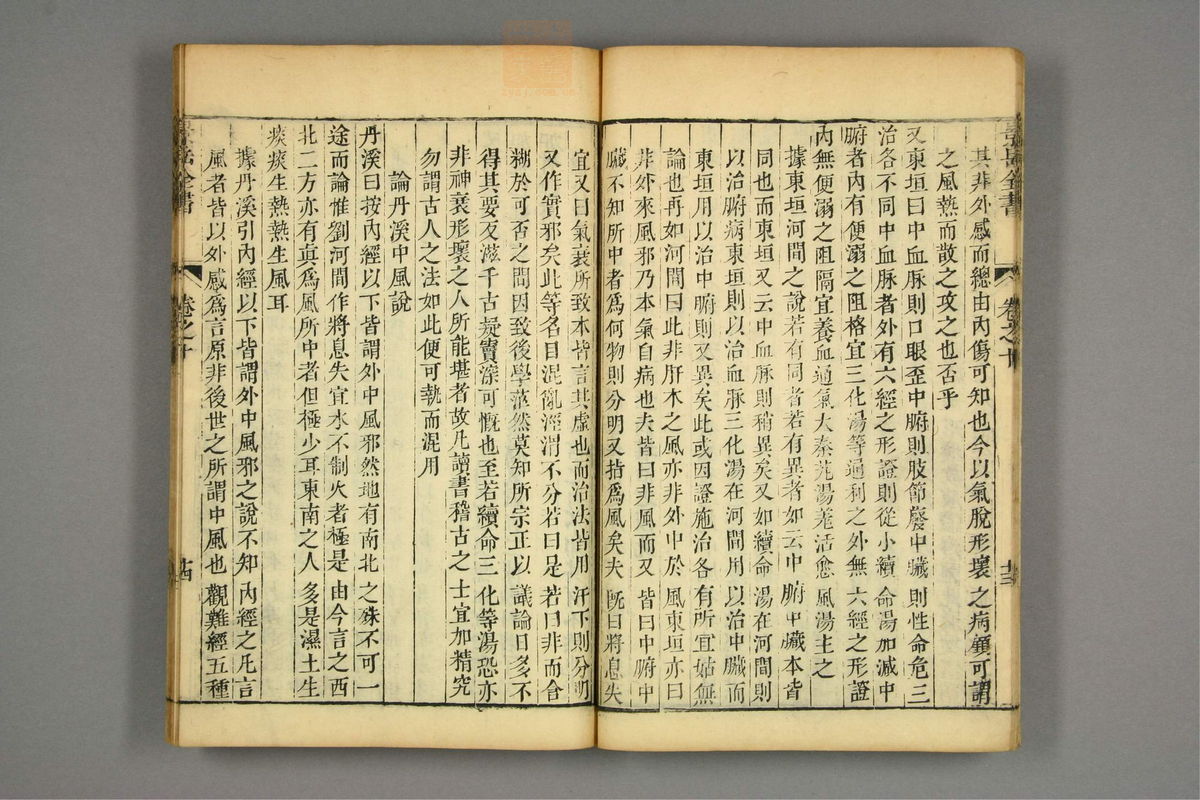 其非外感而總由內傷可知也今以氣脫形壞之病顧可謂
之風熱而散之攻之也否乎
又東垣曰中血脉則口眼歪中腑則肢節廢中臟則性命危三
治各不同中血脉者外有六經之形證則從小續命湯加減中
腑者內有便溺之阻格宜三化湯等通利之外無六經之形證
內無便溺之阻隔宜養血通氣大秦艽湯羗活愈風湯主之
據東垣河間之說若有同者若有異者如云中腑中臟本皆
同也而東垣又云中血脉則稍異矣又如續命湯在河間則
以治腑病東垣則以治血脉三化湯在河間用以治中臟而
東垣用以治中腑則又異矣此或因證施治各有所宜姑無
論也再如河間曰此非肝木之風亦非外中於風東垣亦曰
非外來風邪乃本氣自病也夫皆曰非風而又皆曰中腑中
臟不知所中者爲何物則分明又指爲風矣夫旣曰將息失
宜又曰氣衰所致本皆言其虛也而治法皆用汗下則分明
又作實邪矣此等名目混亂涇渭不分若曰是若曰非而含
糊於可否之間因致後學茫然莫知所宗正以議論日多不
得其要反滋千古疑竇深可慨也至若續命三化等湯恐亦
非神衰形壞之人所能堪者故凡讀書稽古之士宜加精究
勿謂古人之法如此便可執而混用
論丹溪中風說
丹溪曰按內經以下皆謂外中風邪然地有南北之殊不可一
途而論惟劉河間作將息失宜水不制火者極是由今言之西
北二方亦有眞爲風所中者但極少耳東南之人多是濕土生
痰痰生熱熱生風耳
據丹溪引內經以下皆謂外中風邪之說不知內經之凡言
風者皆以外感爲言原非後世之所謂中風也觀難經五種
景岳全書
卷之十
廿三
景岳全書
卷之十
廿四